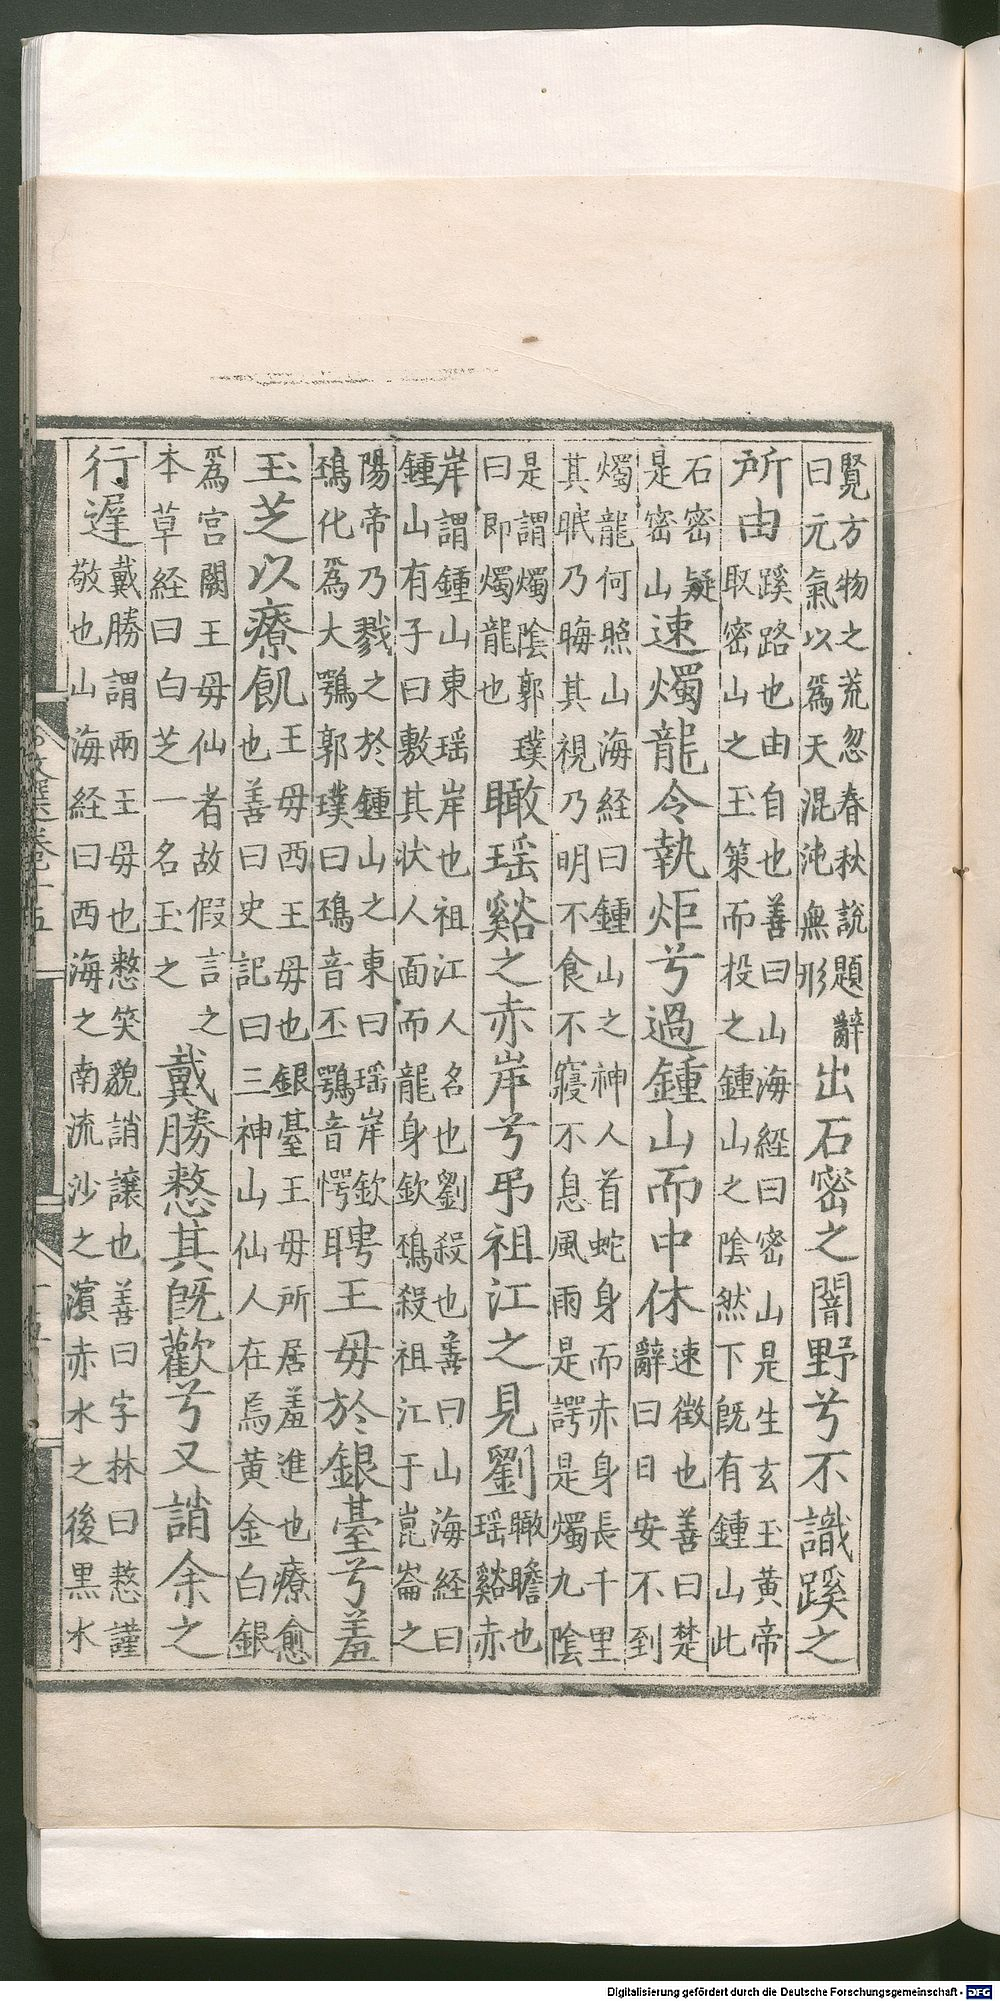 覽方物之荒忽春秋說題辭
曰元氣以爲天混沌無形
出石密之闇野兮不識蹊之
所由
蹊路也由自也善曰山海経曰密山是生玄玉黄帝
取密山之玉策而投之鍾山之陰然下旣有鍾山此
石密疑
是密山
速燭龍令執炬兮過鍾山而中休
速徴也善曰楚
辭曰日安不到
燭龍何照山海経曰鍾山之神人首蛇身而赤身長千里
其眠乃晦其視乃明不食不寢不息風雨是諤是燭九陰
是謂燭陰郭璞
曰即燭龍也
瞰瑶谿之赤岸兮弔祖江之見劉
瞰瞻也
瑶谿赤
岸謂鍾山東瑶岸也祖江人名也劉殺也善曰山海経曰
鍾山有子曰敷其状人面而龍身欽䲹殺祖江于崑崙之
陽帝乃戮之於鍾山之東曰瑶岸欽
䲹化爲大鶚郭璞曰䲹音丕鶚音愕
聘王毋於銀臺兮羞
玉芝以療飢
王毋西王毋也銀臺王毋所居羞進也療愈
也善曰史記曰三神山仙人在焉黄金白銀
爲宫闕王毋仙者故假言之
本草経曰白芝一名玉之
戴勝憗其旣歡兮又誚余之
行遲
戴勝謂兩王毋也憗笑貌誚譲也善曰字林曰憗謹
敬也山海経曰西海之南流沙之濵赤水之後黒水
Digitalisierung gefördert durch die Deutsche Forschungsgemeinschaft - DFG